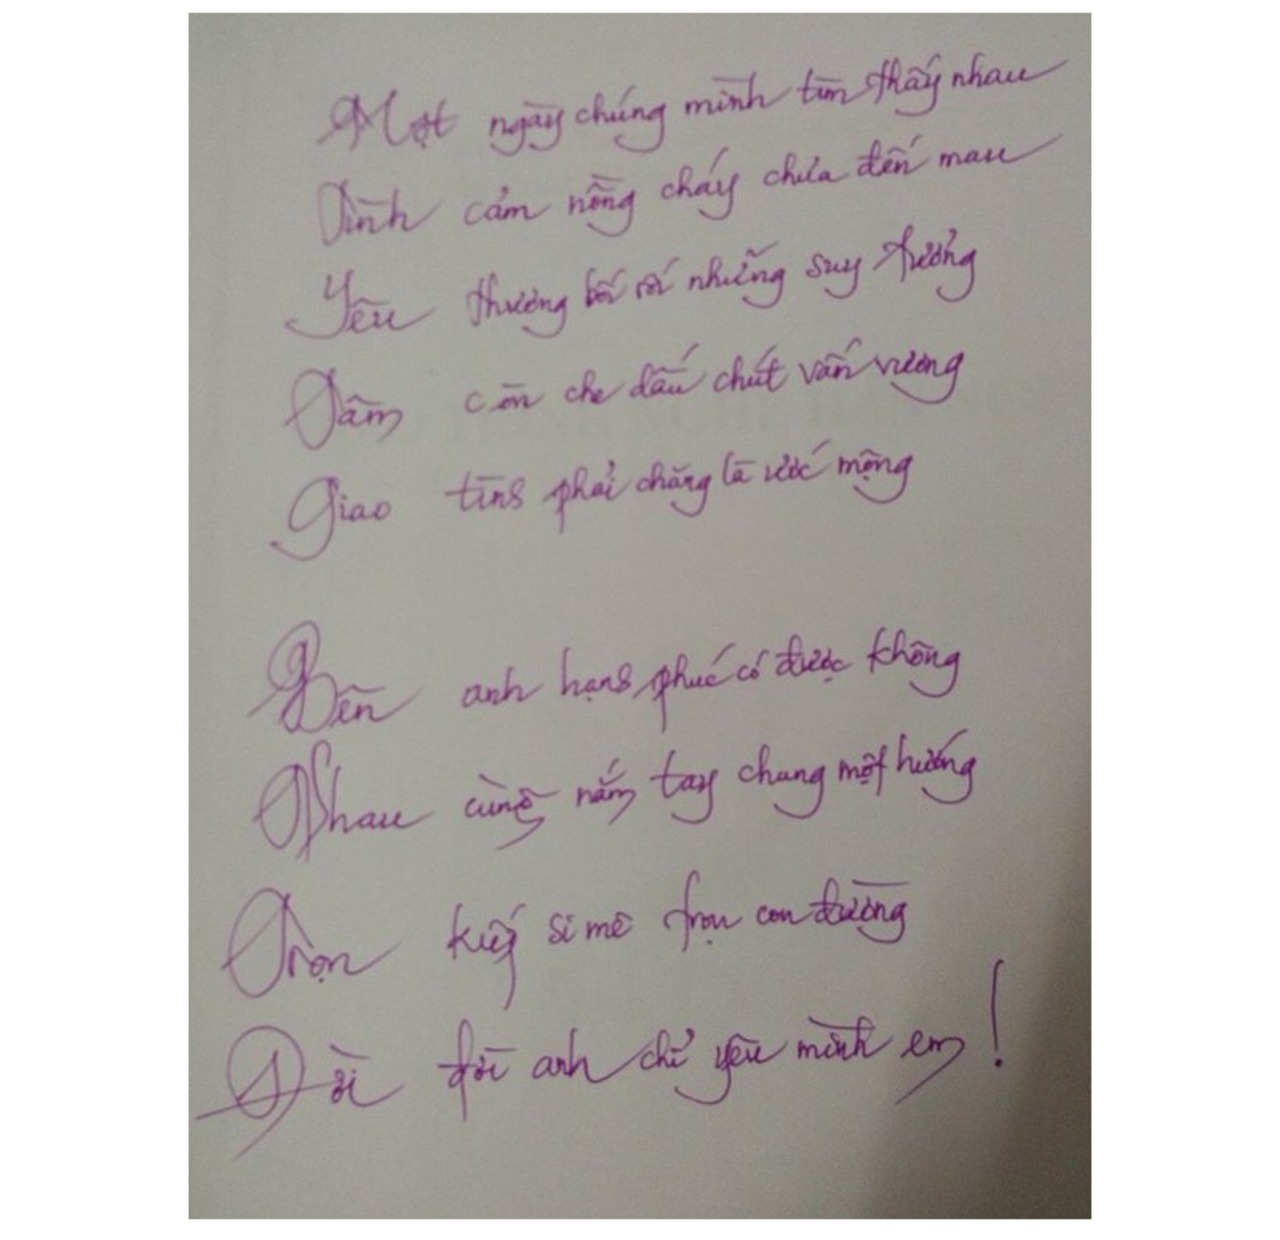 Một ngày chúng mình tìm thấy nhau
Tình cảm nồng cháy chưa đến mau
Yêu thương bối rối những suy tưởng
Tâm còn che dấu chút vấn vương
Giao tình phải chăng là ước mộng
Bên anh hạnh phúc có được không
Nhau cùng nắm tay chung một hướng
Trọn kiếp si mê trọn con đường
Đời đời anh chỉ yêu mình em!